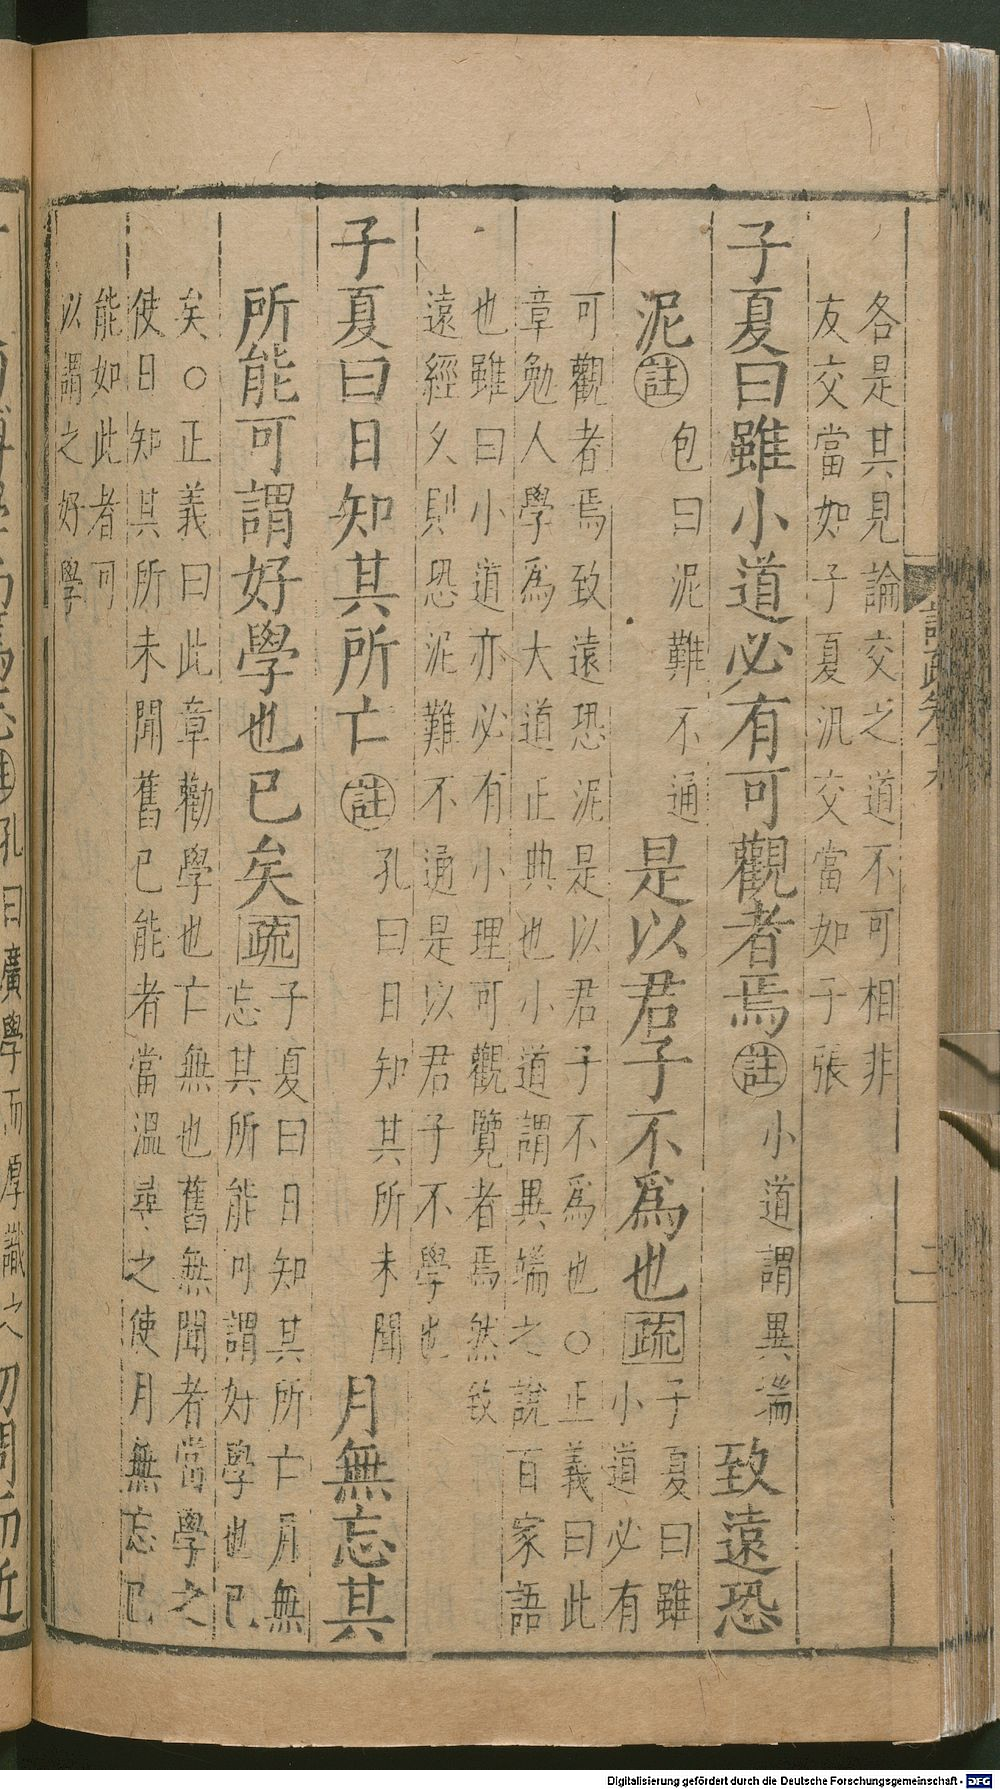 各是其見論交之道不可相非
友交當如子夏汎交當如子張
子夏曰雖小道必有可觀者焉註小道謂異端致遠恐
泥註包曰泥難不通是以君子不爲也疏子夏曰雖
小道必有
可觀者焉致遠恐泥是以君子不爲也○正義曰此
章勉人學爲大道正典也小道謂異端之說百家語
也雖曰小道亦必有小理可觀覽者焉然致
遠經久則恐泥難不通是以君子不學也
子夏曰日知其所亡註孔曰日知其所未聞月無忘其
所能可謂好學也已矣疏子夏曰日知其所亡月無
忘其所能可謂好學也已
矣○正義曰此章勸學也亡無也舊無聞者當學之
使日知其所未聞舊已能者當溫尋之使月無忘已
能如此者可
以謂之好學
註疏卷十九
二
孔曰廣學而厚識之切問而近
Digitalisierung gefördert durch die Deutsche Forschungsgemeinschaft - DFG